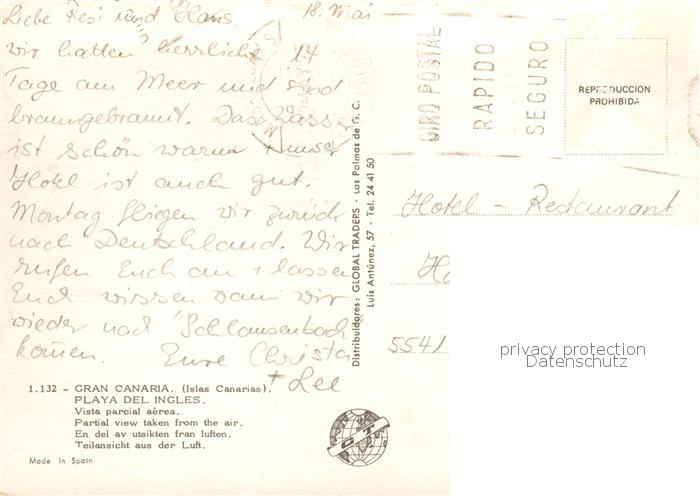 18. Mai
Liebe Resi und Hans,
wir hatten herrliche 14
Tage am Meer und sind
braungebrannt. Das Wasser
ist schön warm + unser
Hotel ist auch gut.
Montag fliegen wir zurück
nach Deutschland. Wir
rufen Euch an + lassen
Euch wissen wann wir
wieder nach "Schlausenbach
kommen. Eure Christa
+ Lee
1.132 - GRAN CANARIA. (Islas Canarias).
PLAYA DEL INGLES.
Vista parcial aérea.
Partial view taken from the air.
En del av utsikten fran luften.
Teilansicht aus der Luft.
Made in Spain
Distribuidores: GLOBAL TRADERS - Las Palmas de G. C.
Luis Antúnez, 57 - Tel. 24 41 50
GIRO POSTAL
RAPIDO
SEGURO
REPRODUCCION
PROHIBIDA
Hotel - Restaurant
5541
privacy protection
Datenschutz